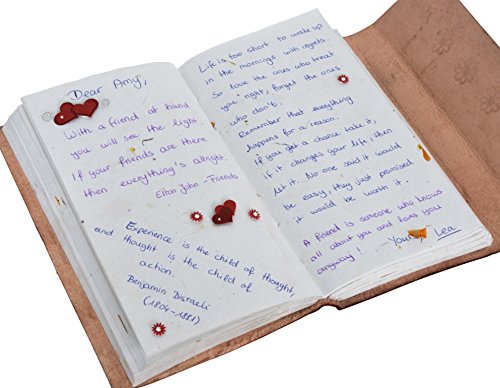 Dear Amy,
With a friend at hand
you will see the light
If your friends are there
then everything's allright.
Elton John - Friends
Experience is the child of thought,
and thought is the child of
action.
Benjamin Disraeli
(1804-1881)
Life is too short to wake up
in the mornings with regrets.
So love the ones who treat
you right, forget the ones
who don't.
Remember that everything
happens for a reason.
If you get a chance take it,
if it changes your life, then
let it. No one said it would
be easy, they just promised
it would be worth it.
A friend is someone who knows
all about you and loves you
anyway! Yours, Lea